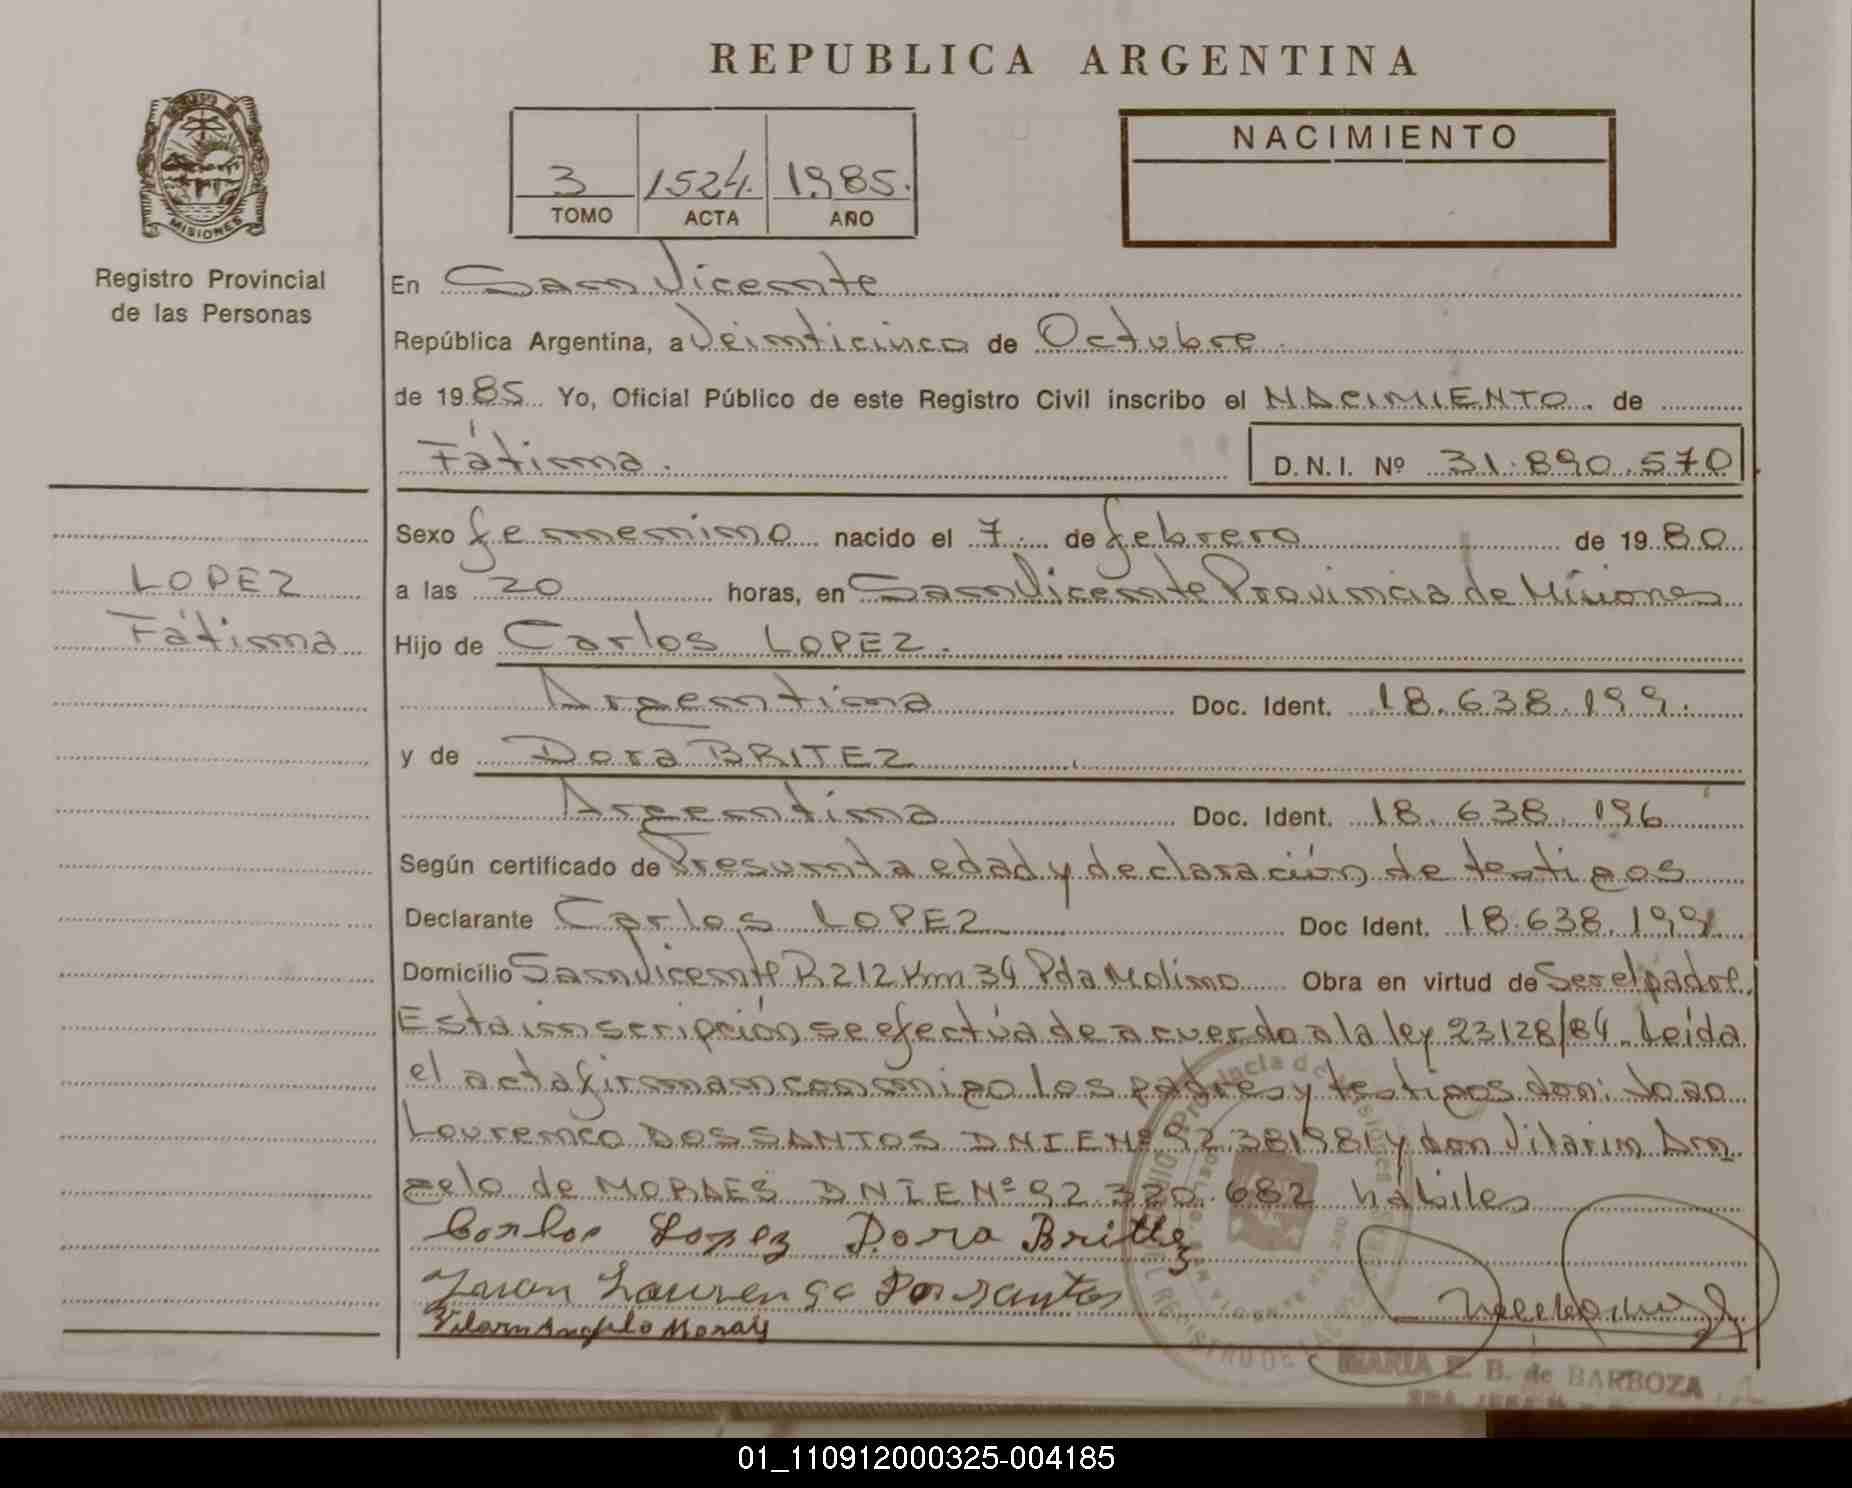 REPUBLICA ARGENTINA
NACIMIENTO
3 1524. 1985.
TOMO ACTA AÑO
MISIONES
Registro Provincial
de las Personas
En San Vicente
República Argentina, a Veinticinco de Octubre.
de 1985 Yo, Oficial Público de este Registro Civil inscribo el NACIMIENTO. de
Fátima. D.N.I. Nº 31.890.570
Sexo femenino nacido el 7 de febrero de 1980
LOPEZ
Fátima
a las 20 horas, en San Vicente Provincia de Misiones
Hijo de Carlos LOPEZ.
Argentina Doc. Ident. 18.638.199.
y de Dora BRITEZ
Argentina Doc. Ident. 18.638.196
Según certificado de Presunta edad y declaración de testigos
Declarante Carlos LOPEZ Doc Ident. 18.638.199
Domicilio San Vicente R 212 Km 34 Pda Molino Obra en virtud de Ser el padre.
Esta inscripción se efectúa de acuerdo a la ley 23128/84. Leída
el acta firman conmigo los padres y testigos don: Joao
Lourenco DOS SANTOS DNIE Nº 92.381981 y don Vilarin An
gelo de MORAES DNIE Nº 92.320.682 hábiles
Carlos Lopez Dora Brittez
Vilarn Angelo Moray
MARIA E. B. de BARBOZA
01_110912000325-004185